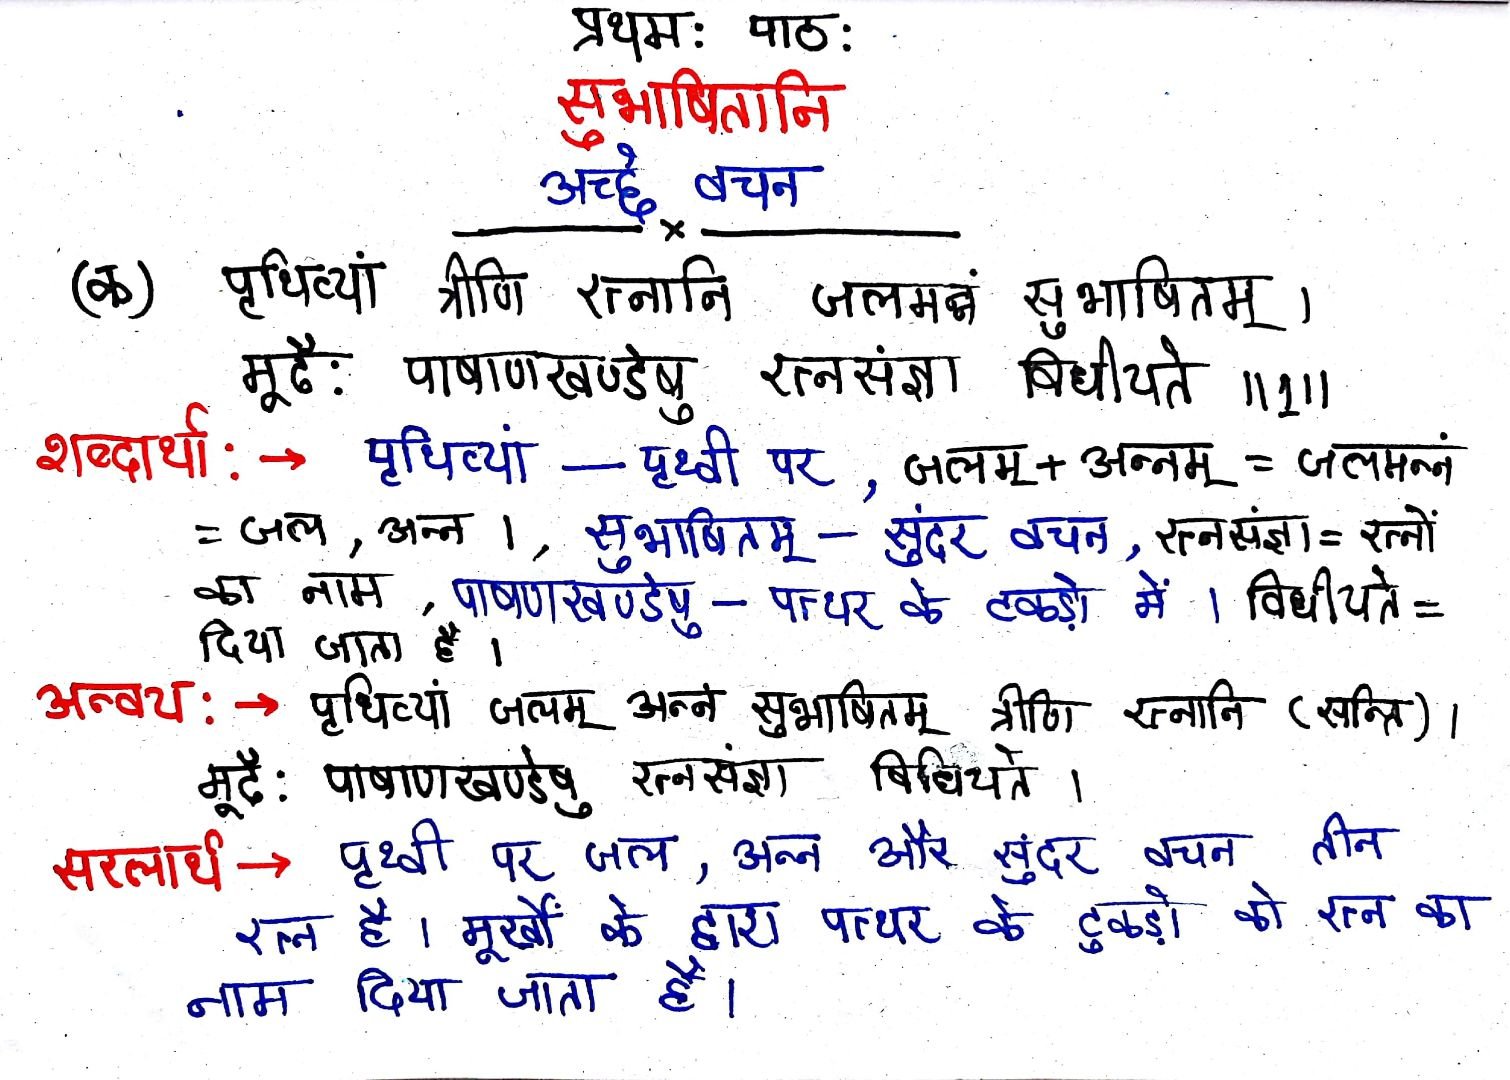 प्रथमः पाठः
सुभाषितानि
अच्छे वचन
(क) पृथिव्यां त्रीणि रत्नानि जलमन्नं सुभाषितम् ।
मूढैः पाषाणखण्डेषु रत्नसंज्ञा विधीयते ॥1॥
शब्दार्थाः → पृथिव्यां — पृथ्वी पर , जलम् + अन्नम् = जलमन्नं
= जल , अन्न । , सुभाषितम् – सुंदर वचन , रत्नसंज्ञा = रत्नों
का नाम , पाषाणखण्डेषु – पत्थर के टकड़ो में । विधीयते =
दिया जाता है ।
अन्वयः → पृथिव्यां जलम् अन्नं सुभाषितम् त्रीणि रत्नानि (सन्ति) ।
मूढैः पाषाणखण्डेषु रत्नसंज्ञा विधियते ।
सरलार्थ → पृथ्वी पर जल , अन्न और सुंदर वचन तीन
रत्न है । मूर्खों के द्वारा पत्थर के टुकड़ो को रत्न का
नाम दिया जाता है ।